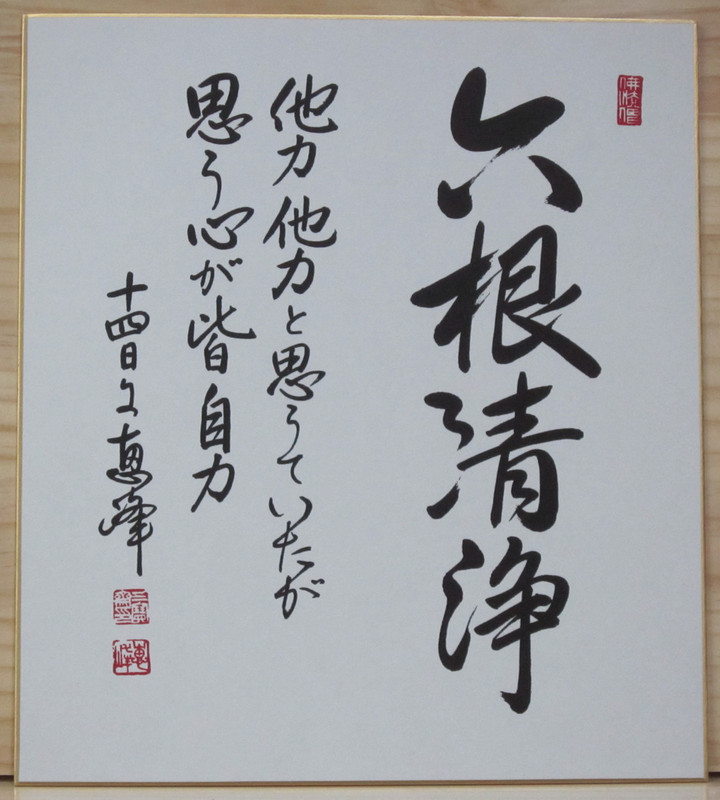 六根清浄
他力他力と思うていたが
思う心が皆自力
十四日文恵峰